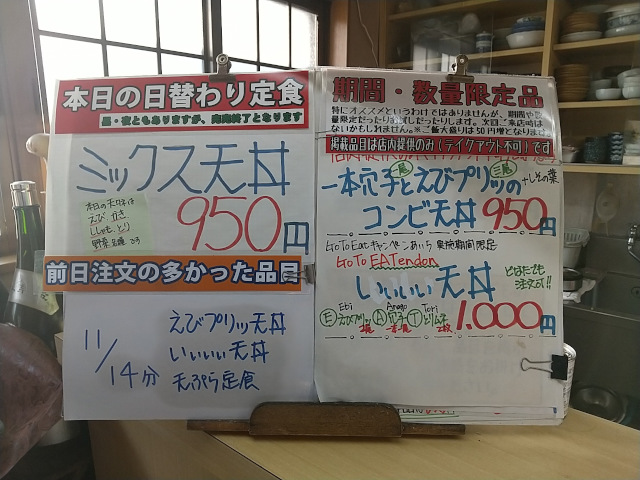 本日の日替わり定食
昼・夜ともありますが、完売終了となります
ミックス天丼
本日の天ネタは
えび、かき
ししゃも、とり
野菜2種です
950円
前日注文の多かった品目
11/14分
えびプリッツ天丼
いいいい天丼
天ぷら定食
期間・数量限定品
特にオススメというわけではありませんが、期間や数
量限定だったりお試しだったりします。次回ご来店時は
ないかもしれません。※ご飯大盛りは50円増となります
掲載品目は店内提供のみ(テイクアウト不可)です
一本穴子とえびプリッツの+しその葉
二尾
コンビ天丼 950円
GoToEatキャンペーンあいち 実施期間限定
GoTo EATendon
いいいい天丼
どなたでも
注文可!!
Ebi Anago Tori
Ⓔえびプリッツ Ⓐ穴子 Ⓣとりムネ
1,000円